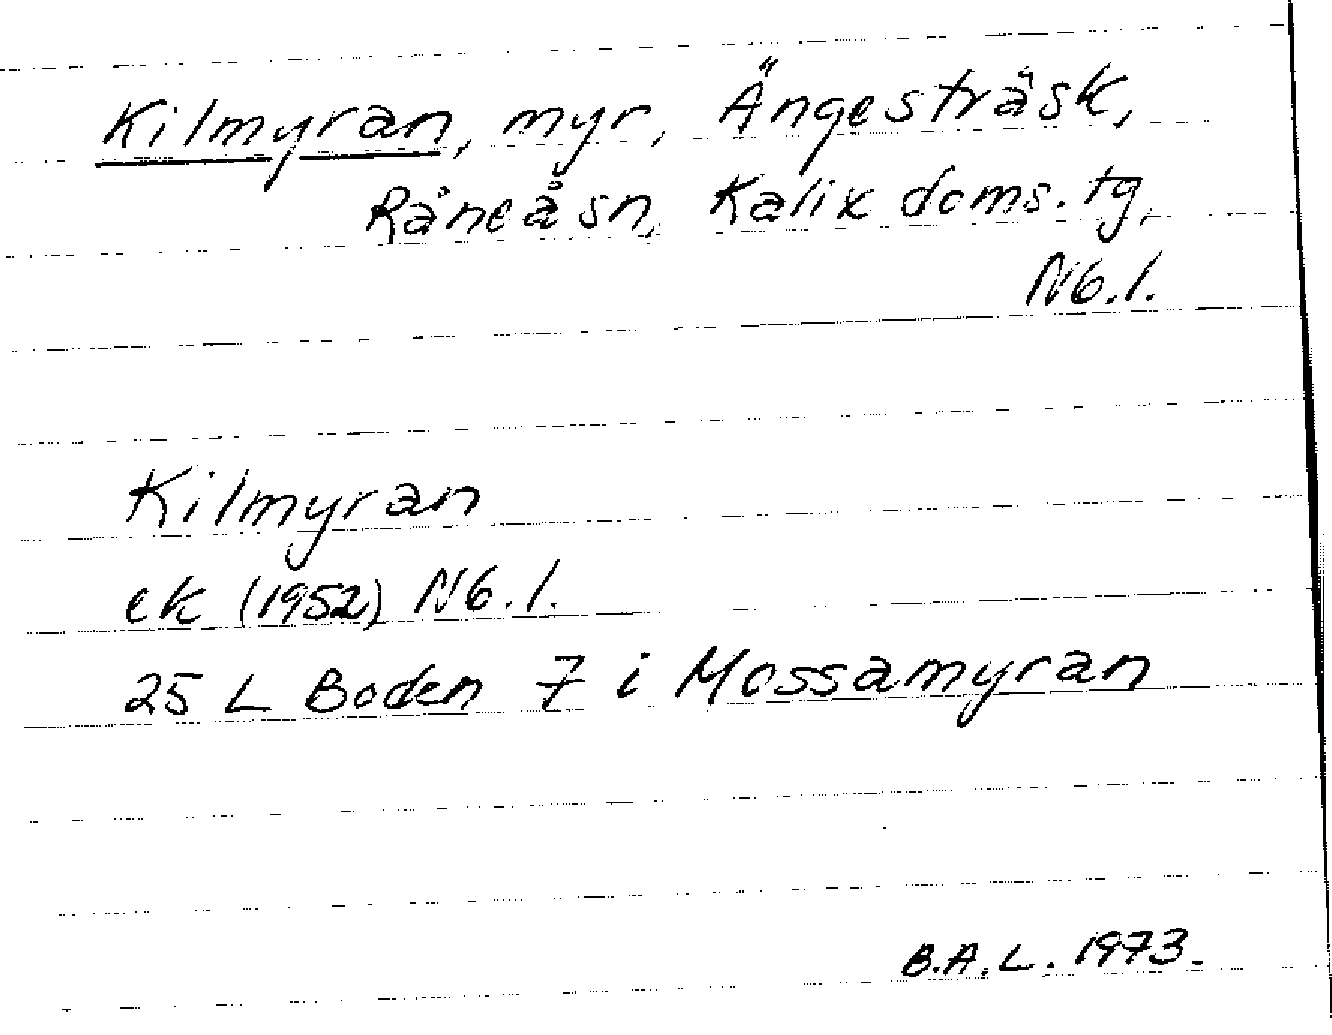 Kilmyran, myr, Ängesträsk,
Råneå sn, Kalix doms. tg,
Nb.l.
Kilmyran
ek (1952) Nb.l.
25 L Boden 7 i Mossamyran
B.A.L. 1973.